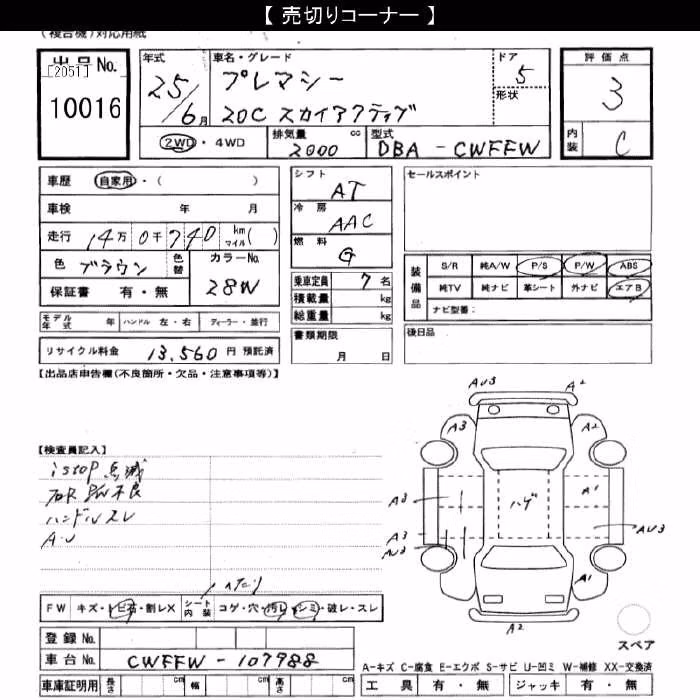 【 売切りコーナー 】
(複合機)対応用紙
出品No.
[2051]
10016
年式
25/6月
車名・グレード
プレマシー
20C スカイアクティブ
ドア
5
形状
評価点
3
内装
C
2WD・4WD
排気量 2000 cc
型式 DBA - CWFFW
車歴 自家用・( )
車検 年 月
走行 14万 0千 740 km マイル ( )
色 ブラウン 色替
カラーNo. 28W
保証書 有・無
シフト AT
冷房 AAC
燃料 G
乗車定員 7 名
積載量 kg
総重量 kg
書類期限
月 日
セールスポイント
装備品
S/R 純A/W P/S P/W ABS
純TV 純ナビ 革シート 外ナビ エアB
ナビ型番:
後日品
モデル年式 年 ハンドル 左・右 ディーラー・並行
リサイクル料金 13,560 円 預託済
【出品店申告欄(不良箇所・欠品・注意事項等)】
【検査員記入】
istop 点滅
ハンドルスレ
A・U
AU3
A2
A3
A2
A3
A1
ハゲ
A3
AU3
AU3
A1
A2
FW キズ・トビ石・割レX
シート内装 コゲ・穴・汚レ・シミ・破レ・スレ
登録No.
車台No. CWFFW-107988
車庫証明用 長さ cm 幅 cm 高さ cm
スペア
A-キズ C-腐食 E-エクボ S-サビ U-凹ミ W-補修 XX-交換済
工具 有・無 ジャッキ 有・無